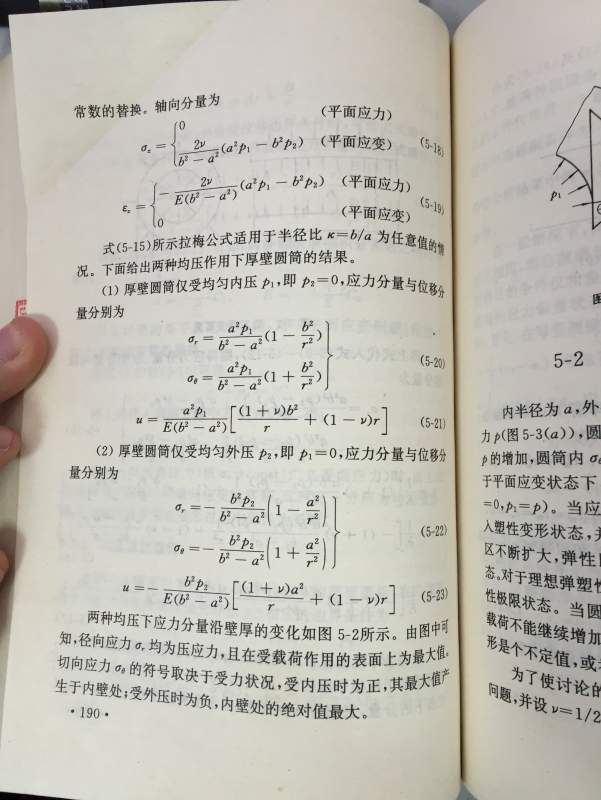 常数的替换。轴向分量为
σz = { 0 (平面应力)
2ν/(b² − a²) (a²p₁ − b²p₂) (平面应变) (5-18)
εz = { − 2ν/(E(b² − a²)) (a²p₁ − b²p₂) (平面应力) (5-19)
0 (平面应变)
式(5-15)所示拉梅公式适用于半径比 κ=b/a 为任意值的情
况。下面给出两种均压作用下厚壁圆筒的结果。
(1) 厚壁圆筒仅受均匀内压 p₁,即 p₂=0,应力分量与位移分
量分别为
σr = a²p₁/(b² − a²) (1 − b²/r²)
σθ = a²p₁/(b² − a²) (1 + b²/r²) } (5-20)
u = a²p₁/(E(b² − a²)) [(1 + ν)b²/r + (1 − ν)r] (5-21)
(2) 厚壁圆筒仅受均匀外压 p₂,即 p₁=0,应力分量与位移分
量分别为
σr = − b²p₂/(b² − a²) (1 − a²/r²)
σθ = − b²p₂/(b² − a²) (1 + a²/r²) } (5-22)
u = − b²p₂/(E(b² − a²)) [(1 + ν)a²/r + (1 − ν)r] (5-23)
两种均压下应力分量沿壁厚的变化如图 5-2所示。由图中可
知,径向应力 σr 均为压应力,且在受载荷作用的表面上为最大值。
切向应力 σθ 的符号取决于受力状况,受内压时为正,其最大值产
生于内壁处;受外压时为负,内壁处的绝对值最大。
·190·
p₁
5-2
内半径为 a,外
力 p(图 5-3(a)),圆
p 的增加,圆筒内 σ
于平面应变状态下
=0,p₁=p)。当应
入塑性变形状态,并
区不断扩大,弹性
态。对于理想弹塑性
性极限状态。当圆
载荷不能继续增加
形是个不定值,或
为了使讨论的
问题,并设 ν=1/2